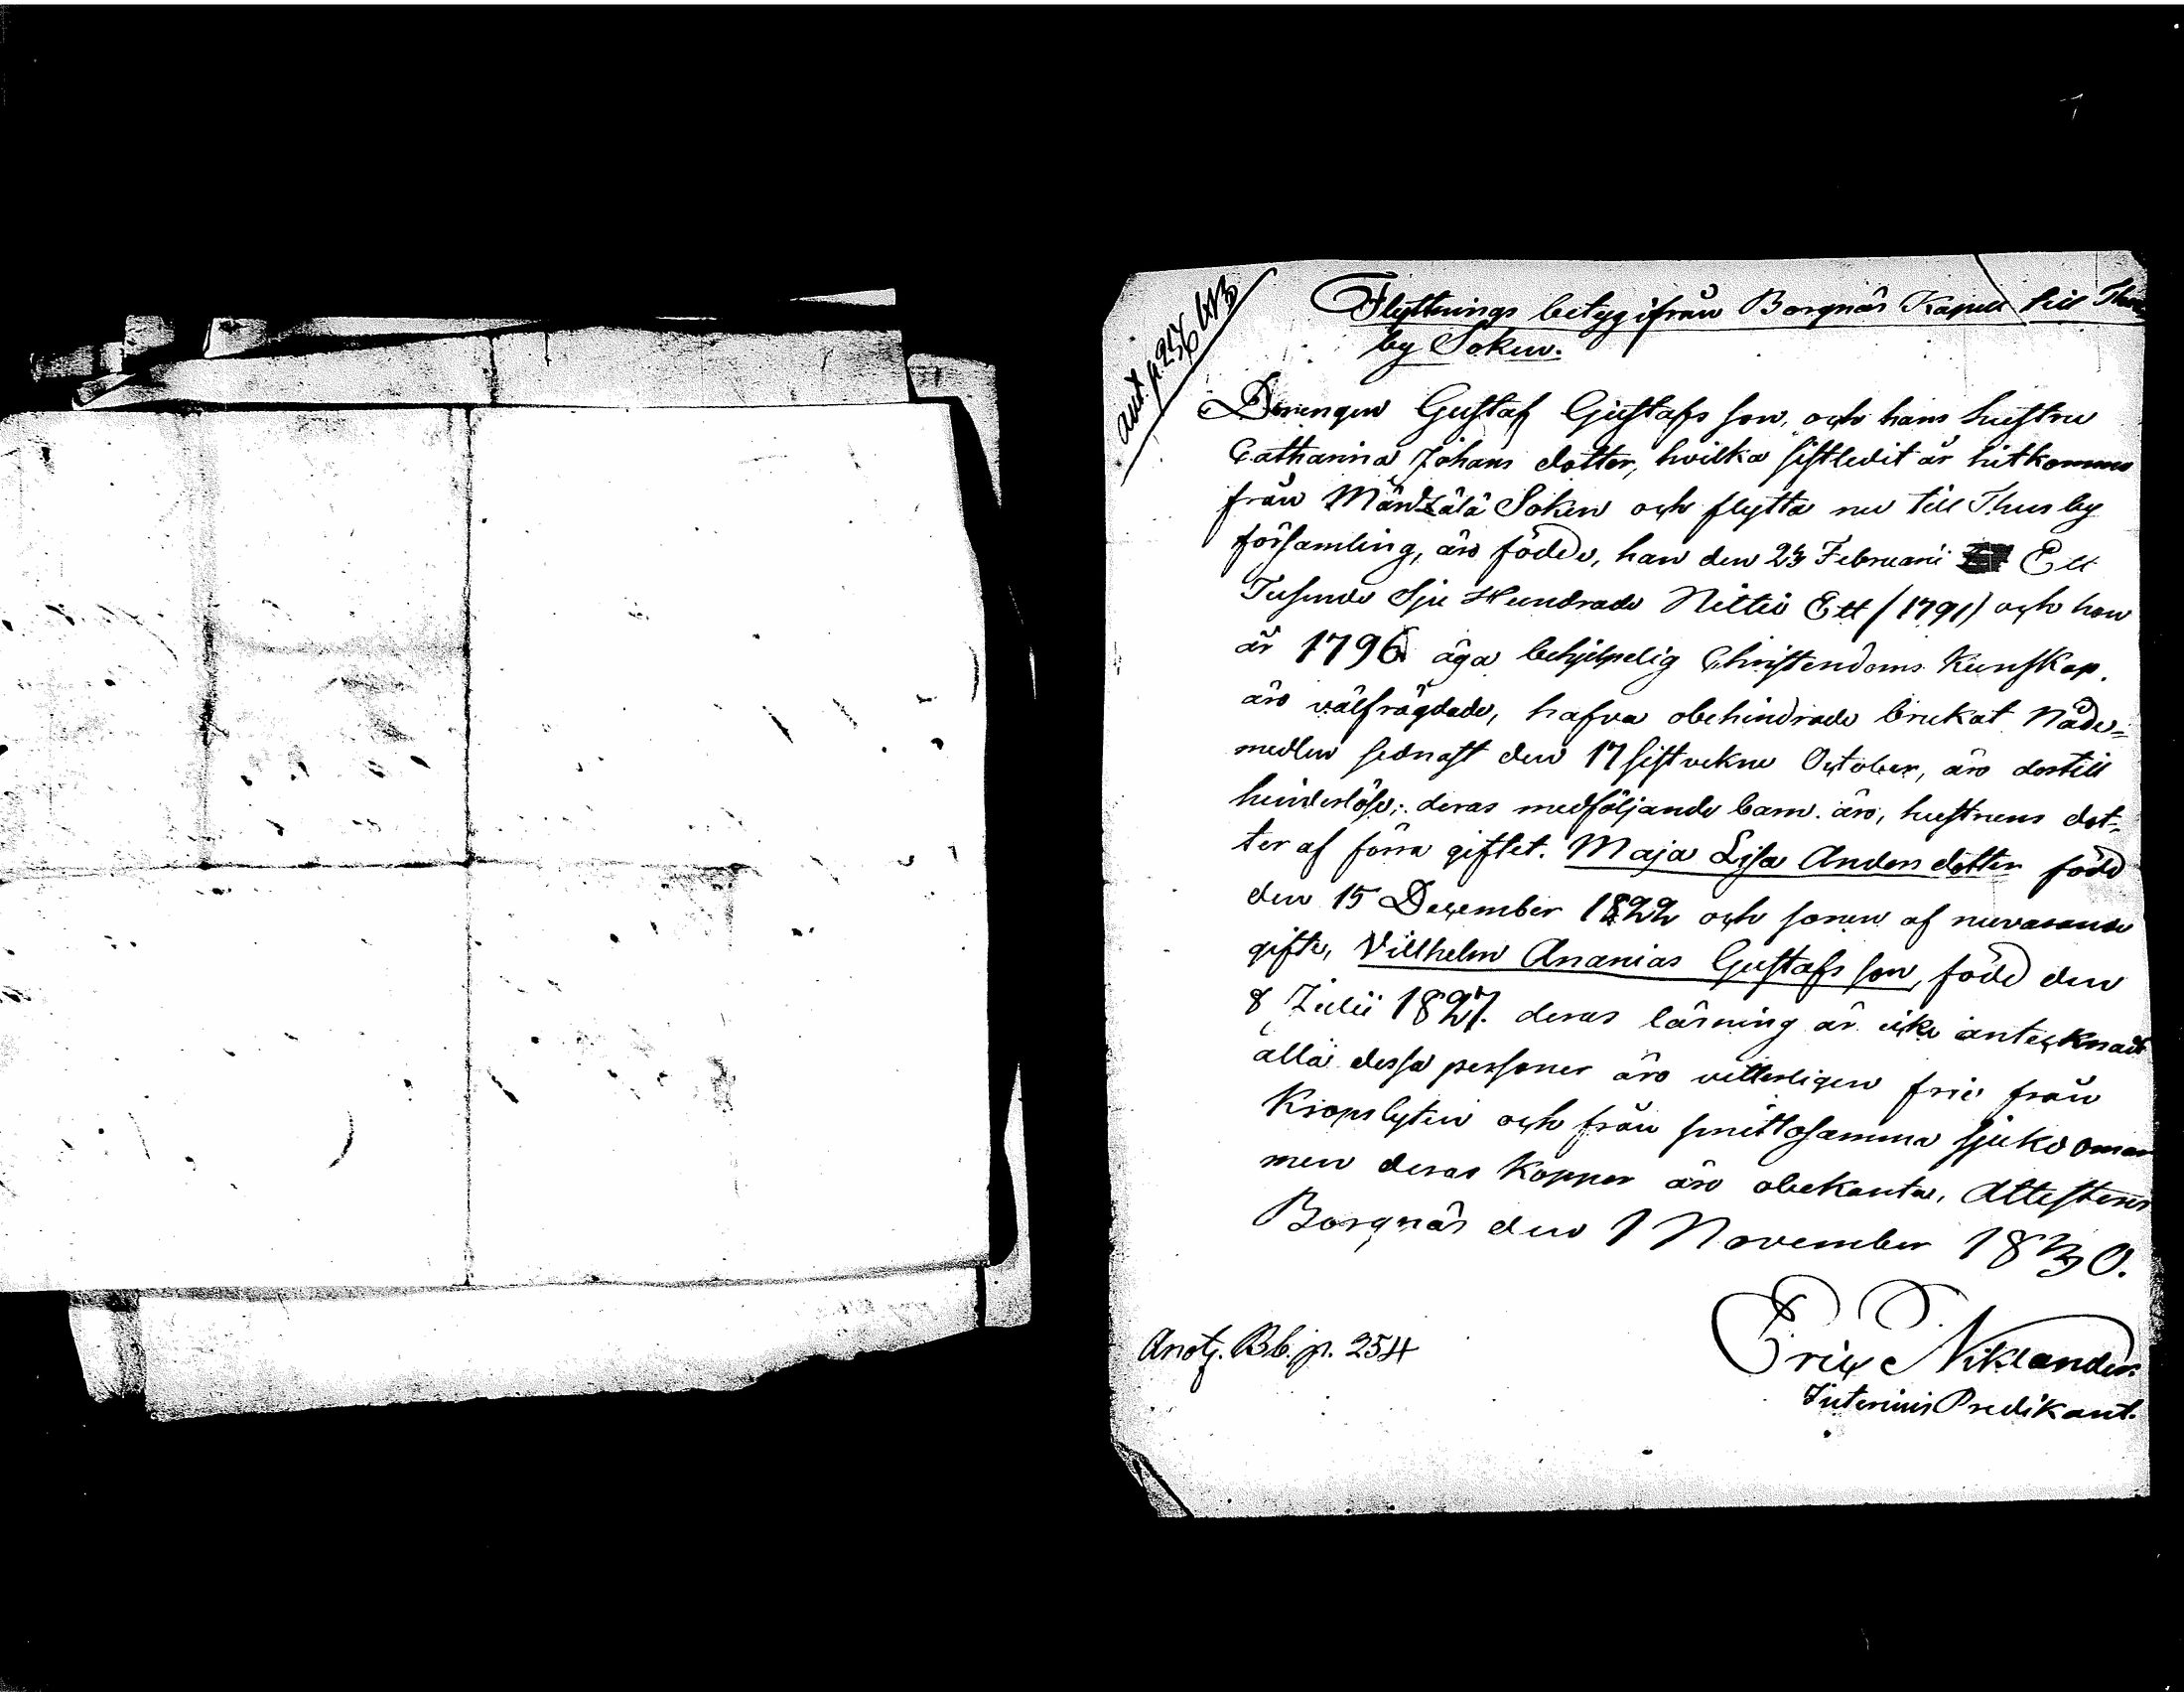 ant. p. 254
Flyttnings betyg ifrån Borgnäs Kapell till Thus
by Soken.
Drengen Gustaf Gustafs son, och hans hustru
Catharina Johans dotter, hvilka sistledit år hitkomne
från Mändzälä Soken och flytta nu till Thusby
församling, äro födde, han den 23 Februarii Ett
Tusende Sju Hundrade Nittio Ett (1791) och hon
år 1796 äga behjelpelig Christendoms Kunskap.
äro välfrägdade, hafva obehindrade brukat Nåde=
medlen sednast den 17 sistvekne October, äro dertill
hinderlöse; deras medföljande barn äro, hustruns dot=
ter af förra giftet. Maja Lisa Anders dotter född
den 15 December 1822 och sonen af nuvarande
gifte, Villhelm Ananias Gustafs son, född den
8 Julii 1827. deras läsning är icke antecknad
alla dessa personer äro vetterligen frie från
Kropslyten och från smittosamma sjukdomar
men deras Koppor äro obekanta, Attesterar
Borgnäs den 1 November 1830.
Eric Niklander.
Interims Predikant.
Anotg. Bb. p. 254